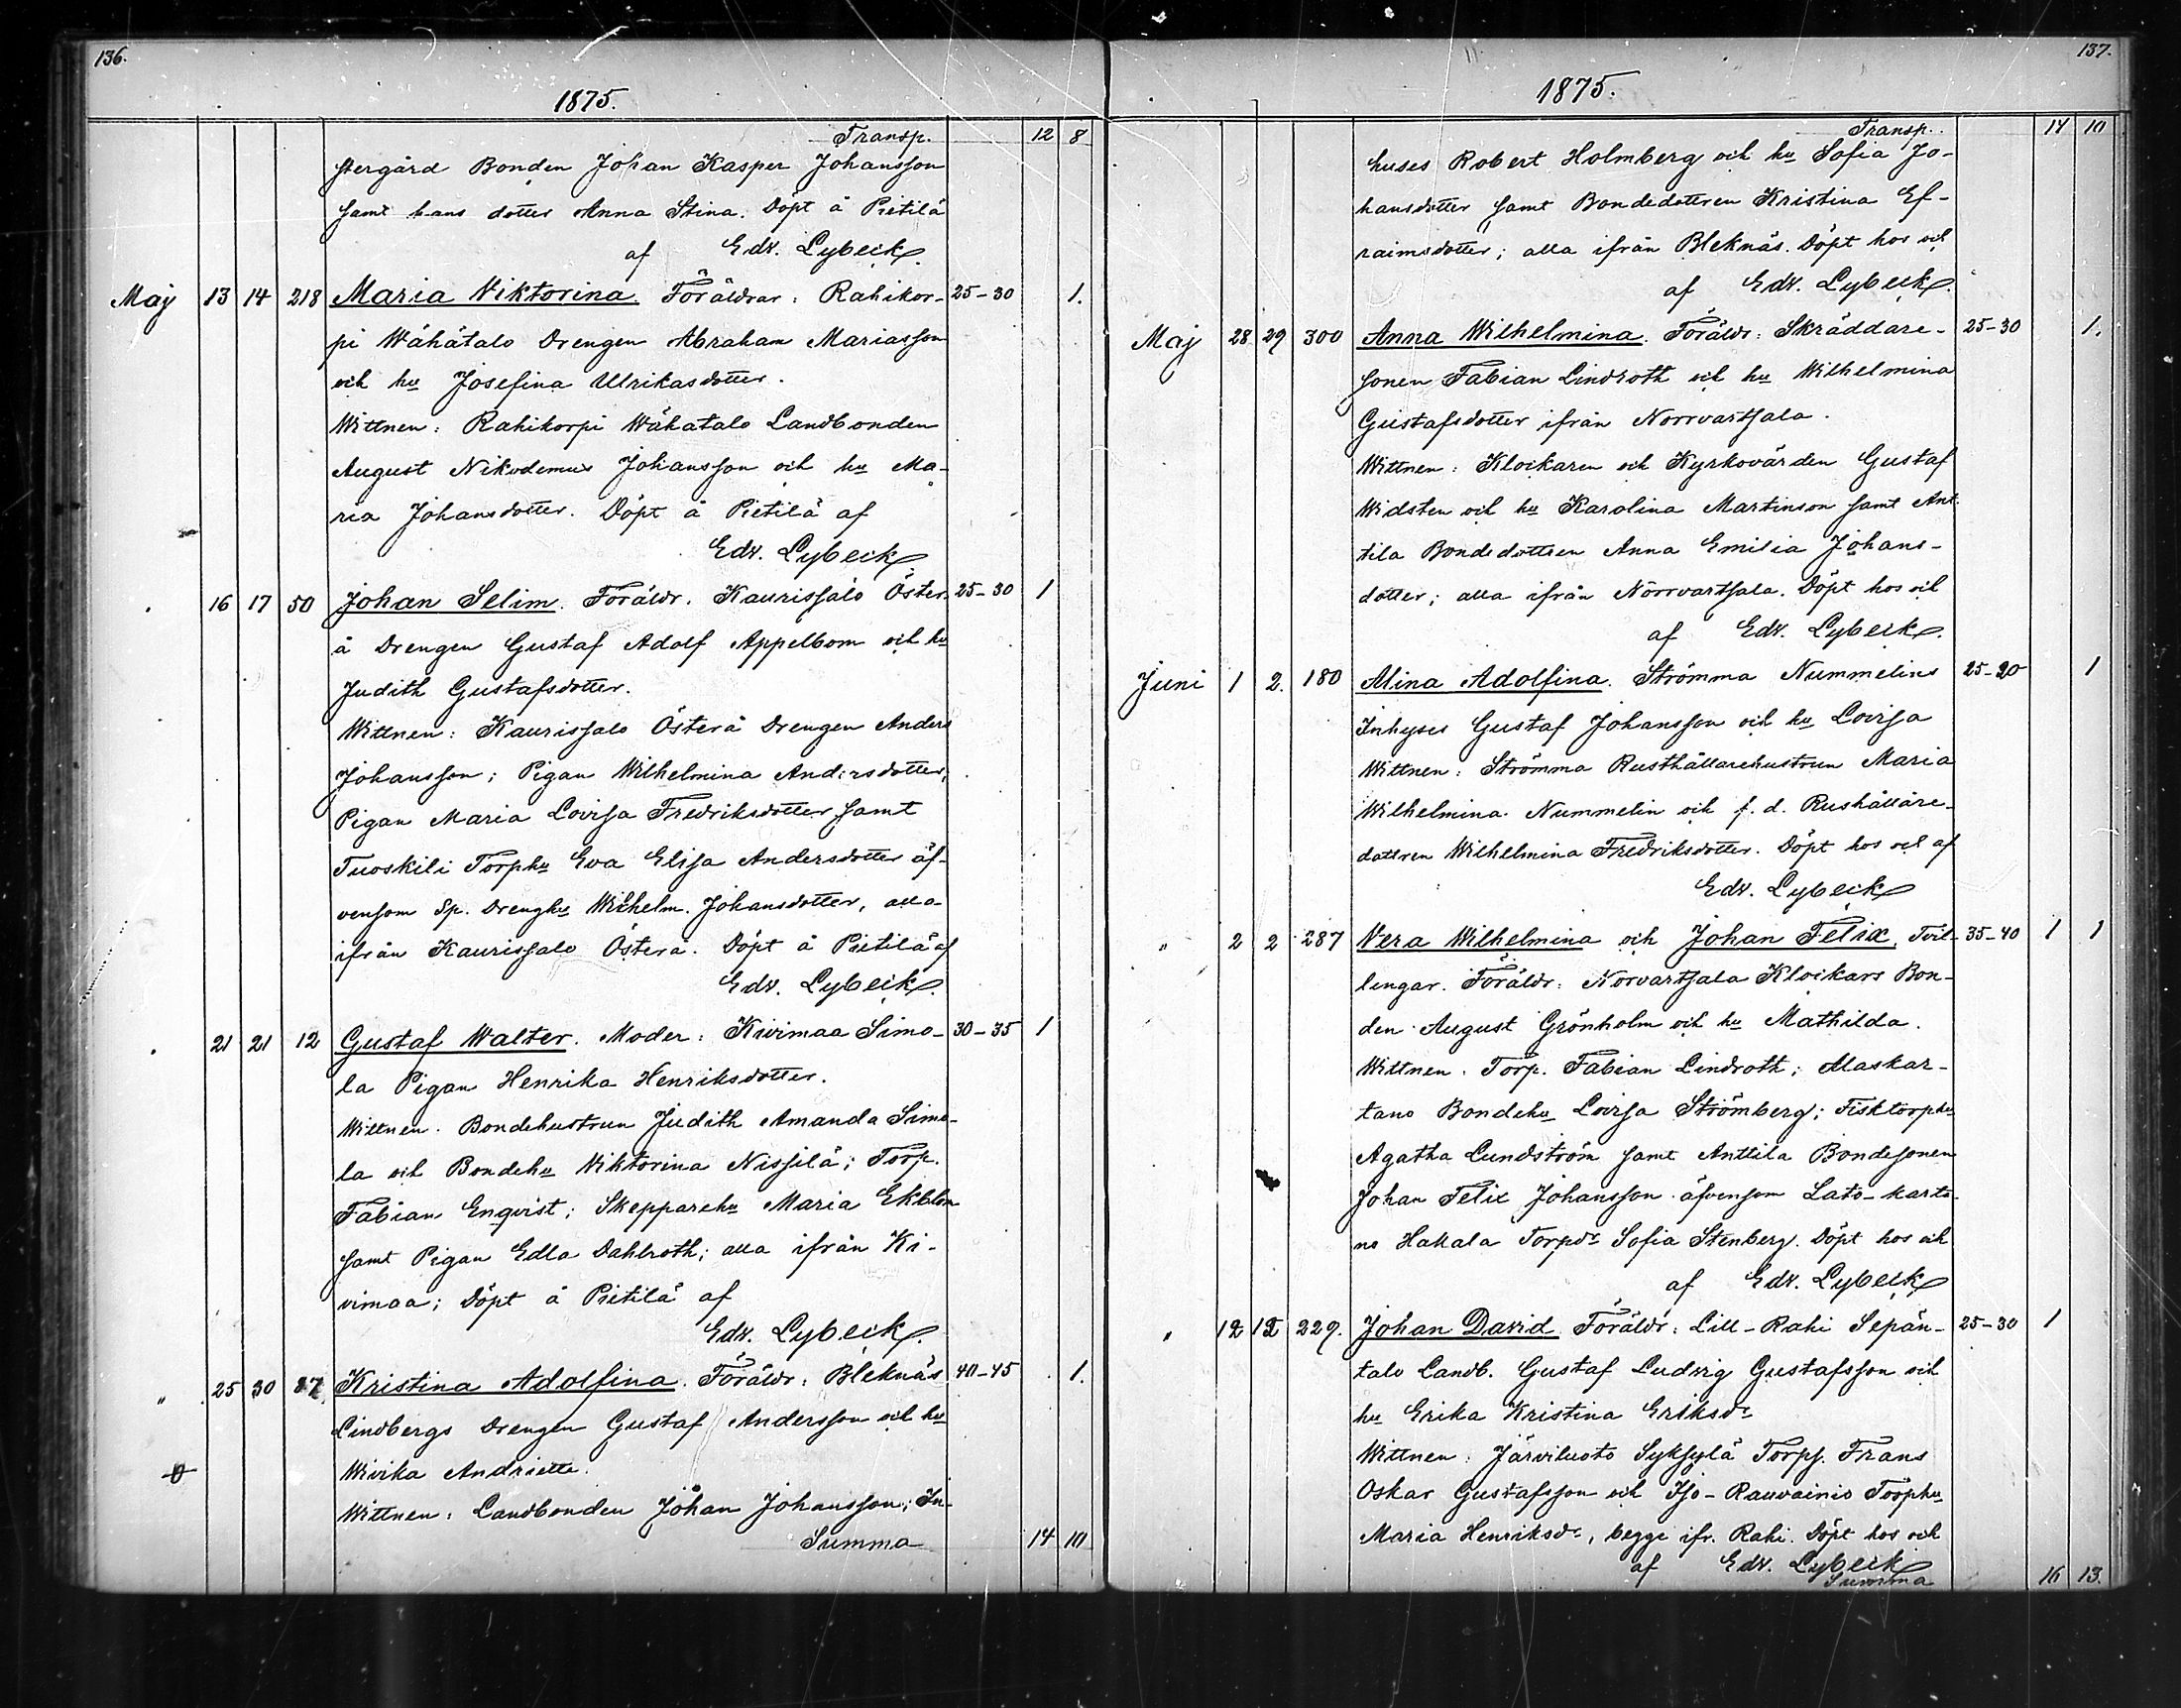 136.
1875.
Transp. 12 8
stergård Bonden Johan Kasper Johansson
samt hans dotter Anna Stina. Döpt å Pietilä
af Edv. Lybeck.
Maj 13 14 218 Maria Viktorina. Föräldrar: Rahikor- 25-30 1.
pi Wähätalo Drengen Abraham Mariasson
och hu Josefina Ulrikasdotter.
Wittnen: Rahikorpi Wähätalo Landbonden
August Nikodemus Johansson och hu Ma-
ria Johansdotter. Döpt å Pietilä af
Edv. Lybeck.
" 16 17 50 Johan Selim. Föräldr. Kaurissalo Öster- 25-30 1
å Drengen Gustaf Adolf Appelbom och hu
Judith Gustafsdotter.
Wittnen: Kaurissalo Österå Drengen Anders
Johansson; Pigan Wilhelmina Andersdotter,
Pigan Maria Lovisa Fredriksdotter samt
Tuoskili Torphu Eva Elisa Andersdotter äf-
vensom Sp. Drenghu Wilhelm. Johansdotter, alla
ifrån Kaurissalo Österå. Döpt å Pietilä af
Edv. Lybeck.
" 21 21 12 Gustaf Walter. Moder: Kivimaa Simo- 30-35 1
la Pigan Henrika Henriksdotter.
Wittnen. Bondehustrun Judith Amanda Simo-
la och Bondehu Viktorina Nissilä; Torp.
Fabian Enqvist; Skepparehu Maria Ekblom
samt Pigan Edla Dahlroth; alla ifrån Ki-
vimaa; Döpt å Pietilä af
Edv. Lybeck.
" 25 30 87 Kristina Adolfina. Föräldr: Bleknäs 40-45 1.
Lindbergs Drengen Gustaf Andersson och hu
Wivika Andriette.
Wittnen: Landbonden Johan Johansson; In-
Summa 14 10
137.
1875.
Transp. 14 10
huses Robert Holmberg och hu Sofia Jo-
hansdotter samt Bondedottren Kristina Ef-
raimsdotter; alla ifrån Bleknäs. Döpt hos och
af Edv. Lybeck.
Maj 28 29 300 Anna Wilhelmina. Föräldr: Skräddare- 25-30 1.
sonen Fabian Lindroth och hu Wilhelmina
Gustafsdotter ifrån Norrvartsala.
Wittnen: Klockaren och Kyrkovärden Gustaf
Widsten och hu Karolina Martinson samt Ant-
tila Bondedottren Anna Emilia Johans-
dotter; alla ifrån Norrvartsala. Döpt hos och
af Edv. Lybeck.
Juni 1 2. 180 Alina Adolfina. Strömma Nummelins 25-20 1
Inhyses Gustaf Johansson och hu Lovisa
Wittnen: Strömma Rusthållarehustrun Maria
Wilhelmina Nummelin och f. d. Rushållare-
dottren Wilhelmina Fredriksdotter. Döpt hos och af
Edv. Lybeck
" 2 2 287 Vera Wilhelmina och Johan Felix, Tvil- 35-40 1 1
lingar. Föräldr: Norvartsala Klockars Bon-
den August Grönholm och hu Mathilda.
Wittnen. Torp. Fabian Lindroth; Alaskar-
tano Bondehu Lovisa Strömberg; Fisktorphu
Agatha Lundström samt Anttila Bondesonen
Johan Felix Johansson äfvensom Lato-karta-
no Hakala Torpdr Sofia Stenberg. Döpt hos och
af Edv. Lybeck
" 12 12 229. Johan David Föräldr: Lill-Rahi Sepän- 25-30 1
talo Landb. Gustaf Ludvig Gustafsson och
hu Erika Kristina Eriksdr
Wittnen: Järviluoto Syksylä Torps. Frans
Oskar Gustafsson och Iso-Rauvainio Torphu
Maria Henriksdr, begge ifr. Rahi. Döpt hos och
af Edv. Lybeck
Summa 16 13.